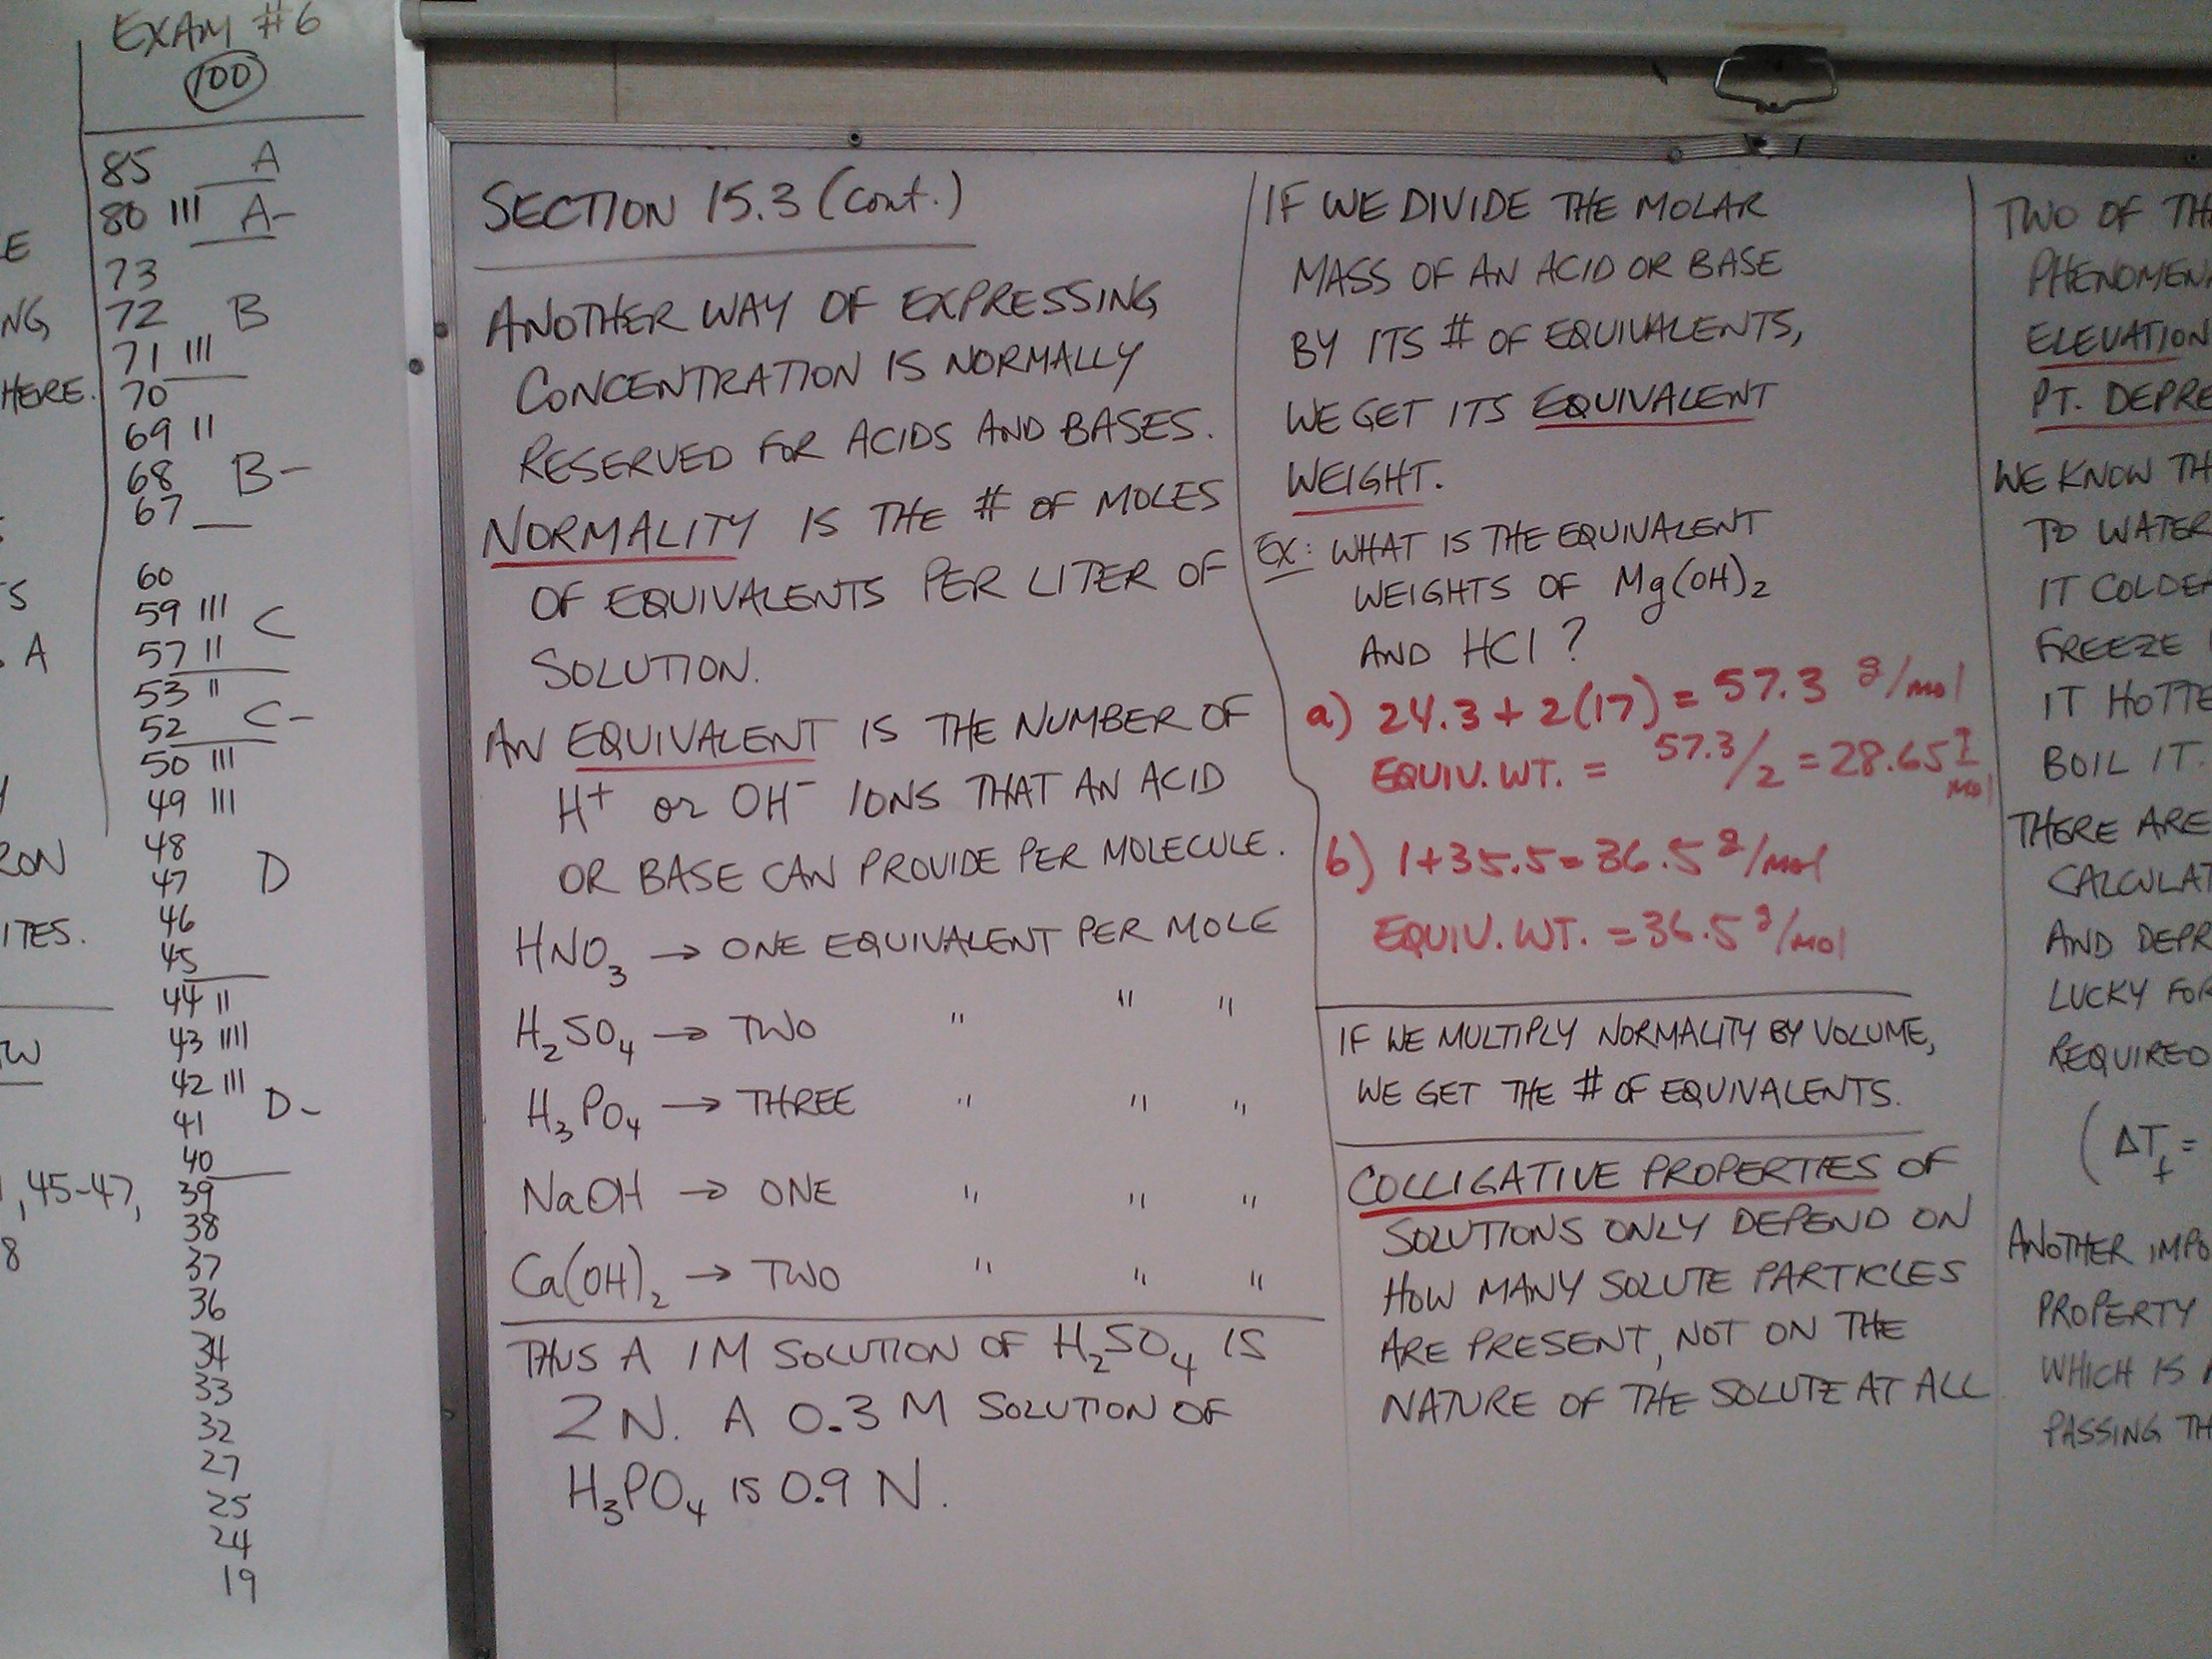 EXAM #6
100
85 A
80 III A-
73
72 B
71 III
70
69 II
68 B-
67
60
59 III C
57 II
53 II
52 C-
50 III
49 III
48
47 D
46
45
44 II
43 IIII
42 III
41 D-
40
39
38
37
36
34
33
32
27
25
24
19
E
NG
HERE.
S
A
RON
ITES.
W
, 45-47,
8
SECTION 15.3 (cont.)
ANOTHER WAY OF EXPRESSING
CONCENTRATION IS NORMALLY
RESERVED FOR ACIDS AND BASES.
NORMALITY IS THE # OF MOLES
OF EQUIVALENTS PER LITER OF
SOLUTION.
AN EQUIVALENT IS THE NUMBER OF
H⁺ or OH⁻ IONS THAT AN ACID
OR BASE CAN PROVIDE PER MOLECULE.
HNO₃ → ONE EQUIVALENT PER MOLE
H₂SO₄ → TWO " " "
H₃PO₄ → THREE " " "
NaOH → ONE " " "
Ca(OH)₂ → TWO " " "
THUS A 1M SOLUTION OF H₂SO₄ IS
2N. A 0.3 M SOLUTION OF
H₃PO₄ IS 0.9 N.
IF WE DIVIDE THE MOLAR
MASS OF AN ACID OR BASE
BY ITS # OF EQUIVALENTS,
WE GET ITS EQUIVALENT
WEIGHT.
EX: WHAT IS THE EQUIVALENT
WEIGHTS OF Mg(OH)₂
AND HCl?
a) 24.3 + 2(17) = 57.3 g/mol
EQUIV. WT. = 57.3/2 = 28.65 g/mol
b) 1+35.5=36.5 g/mol
EQUIV. WT. = 36.5 g/mol
IF WE MULTIPLY NORMALITY BY VOLUME,
WE GET THE # OF EQUIVALENTS.
COLLIGATIVE PROPERTIES OF
SOLUTIONS ONLY DEPEND ON
HOW MANY SOLUTE PARTICLES
ARE PRESENT, NOT ON THE
NATURE OF THE SOLUTE AT ALL
TWO OF TH
PHENOMEN
ELEVATION
PT. DEPRE
WE KNOW TH
TO WATER
IT COLDE
FREEZE
IT HOTTE
BOIL IT.
THERE ARE
CALCULAT
AND DEPR
LUCKY FOR
REQUIRED
(ΔT_f =
ANOTHER IMPO
PROPERTY
WHICH IS
PASSING TH